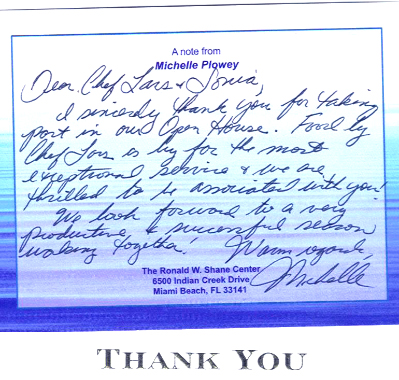 A note from
Michelle Plowey
Dear Chef Lars & Sonia,
I sincerely thank you for taking
part in our Open House. Food by
Chef Lars is by far the most
exceptional service & we are
thrilled to be associated with you!
We look forward to a very
productive & successful season
working together! Warm regards,
Michelle
The Ronald W. Shane Center
6500 Indian Creek Drive
Miami Beach, FL 33141
THANK YOU